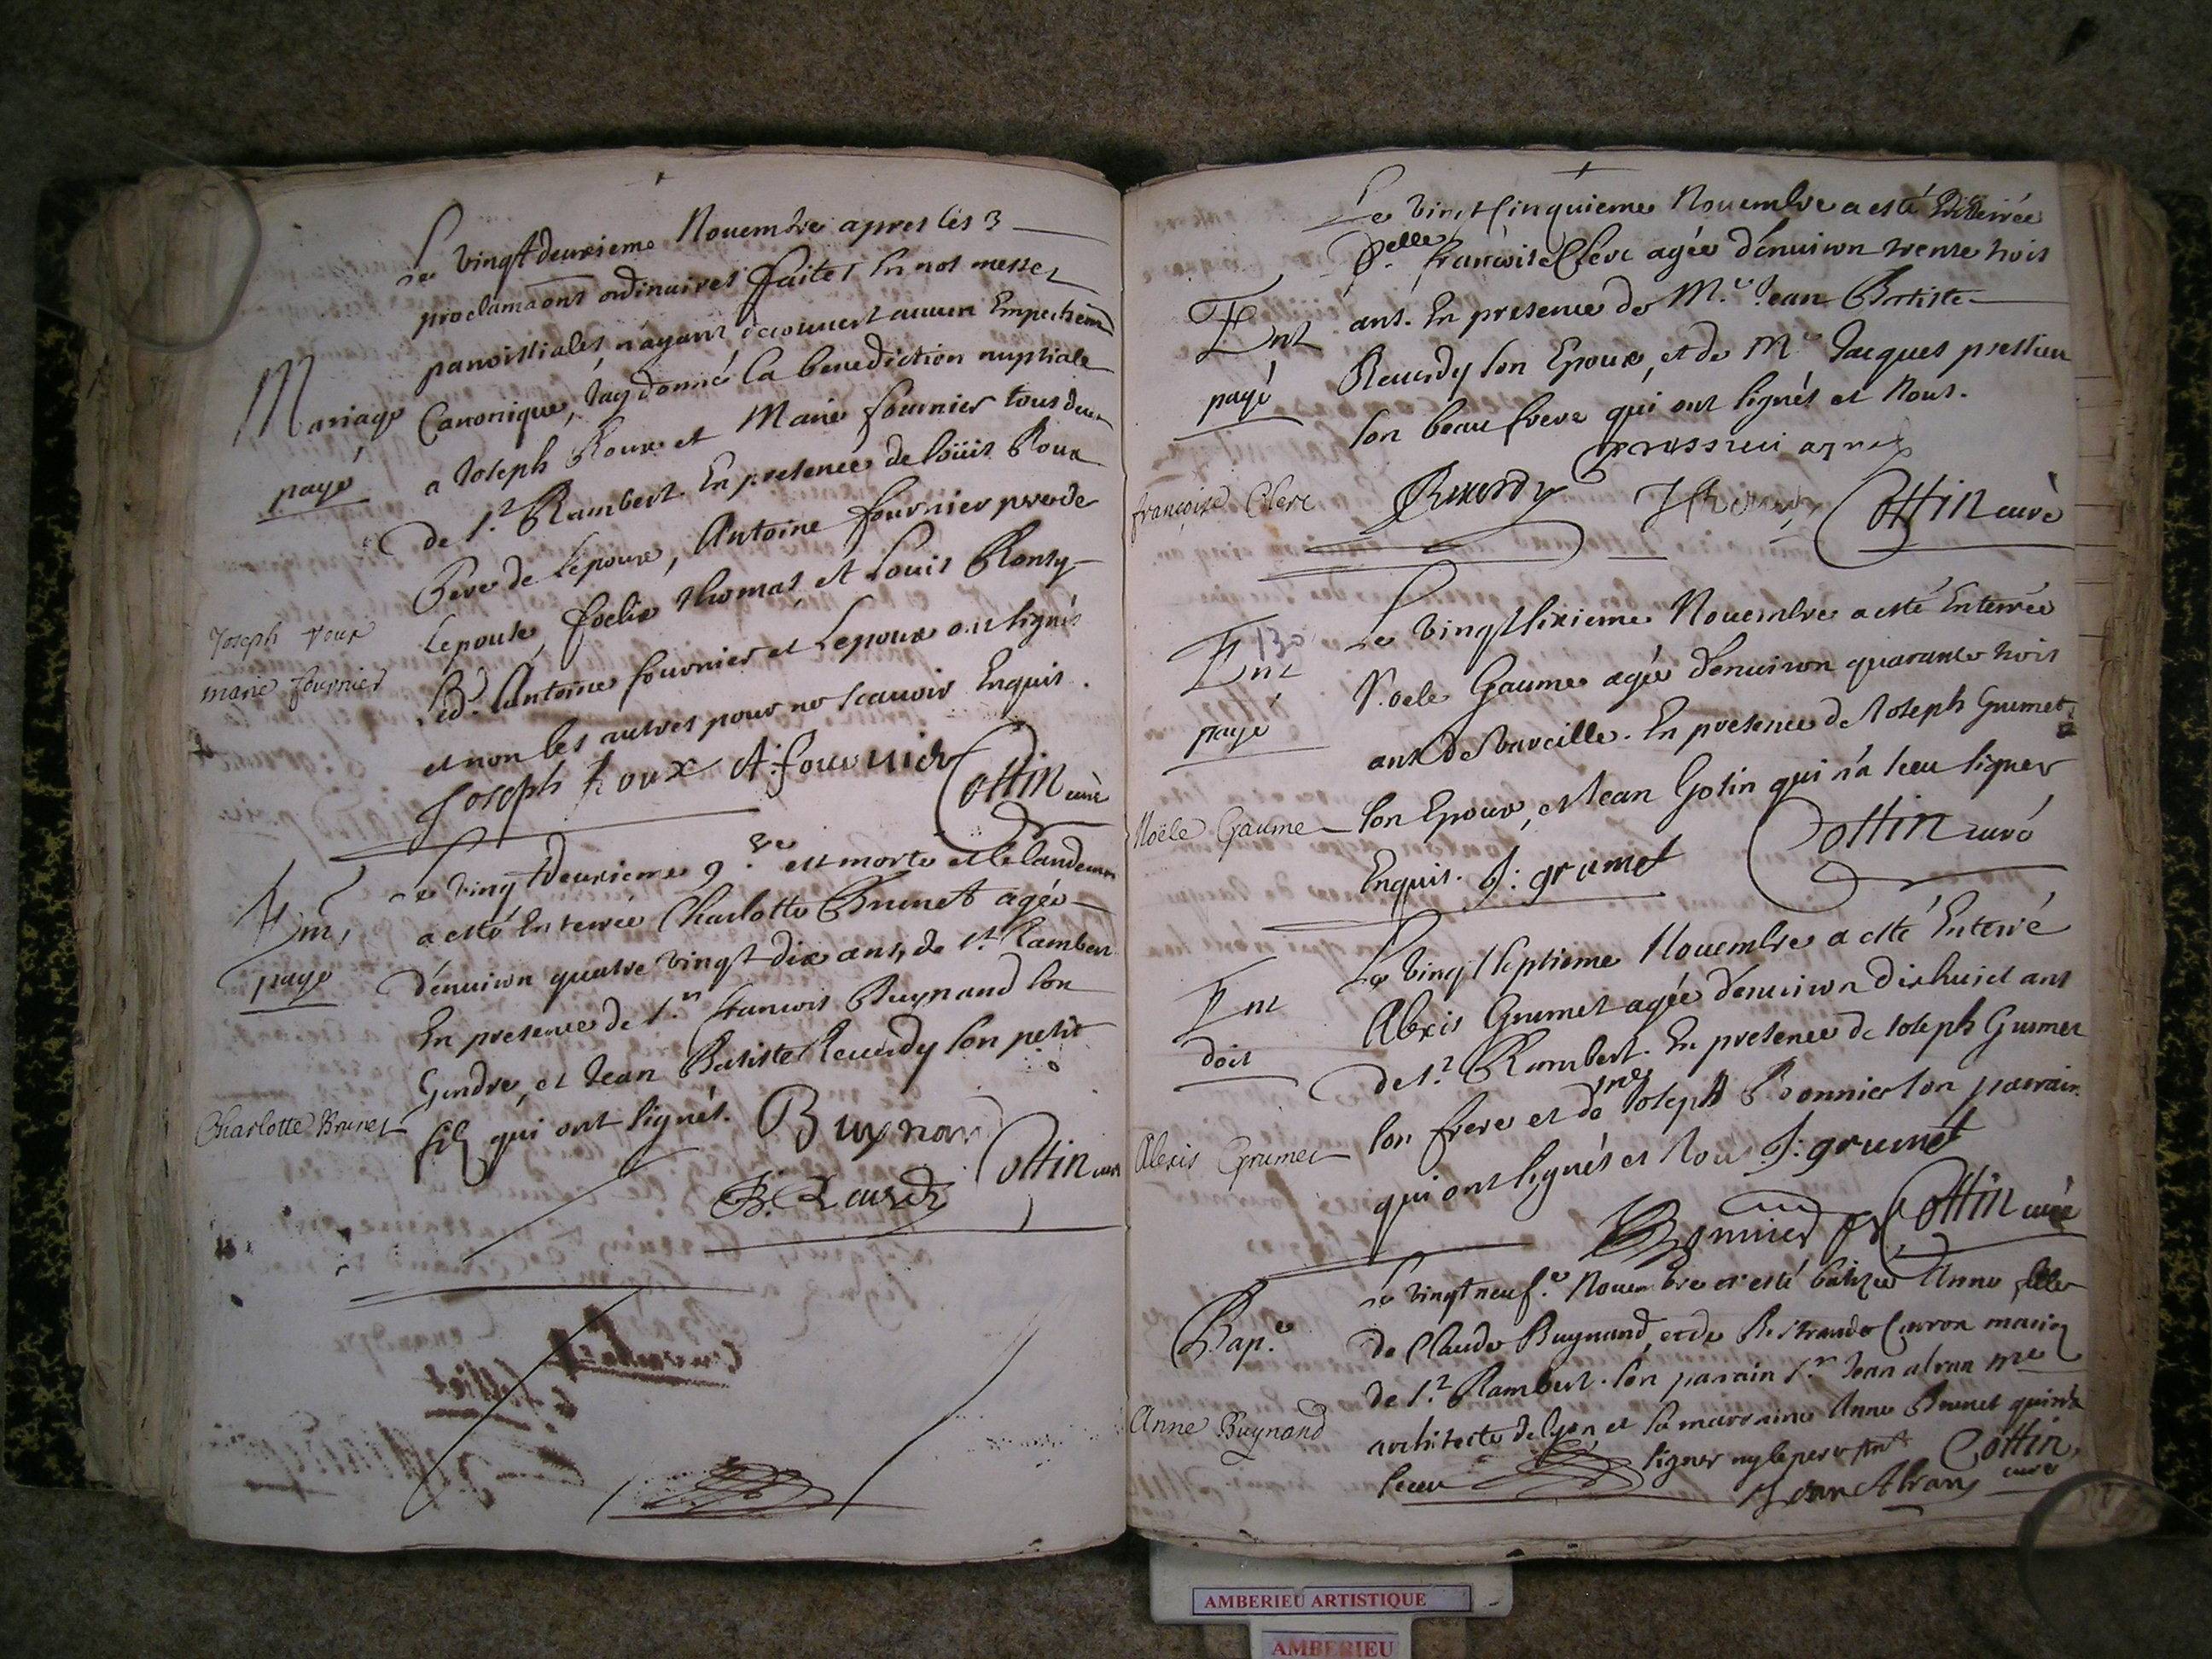 Le vingtdeuxieme Nouembre apres les 3
proclamaons ordinaires faites En nos messes
paroissiales n'ayant decouuert aucun Empechem
Mariage Canonique, J'ay donné la benediction nuptiale
payé a Joseph Roux et Marie fournier tous deux
de St Rambert. En presence de loüis Roux
Pere de Lepoux, Antoine fournier pere de
Joseph roux Lepouse, foelix Thomas, et Louis
marie fournier Led. Antoine fournier et Lepoux ont signés
et non les autres pour ne scauoir Enquis.
Joseph Roux A: fournier Cottin curé
Le vingtdeuxieme 9bre est morte et le landemain
Ent, a esté Enterrée Charlotte Brunet agée
payé d'enuiron quatre vingt dix ans, de St Rambert
En presence de Sr francois Buynand son
Gendre, et Jean Batiste Reuerdy son petit
Charlotte Brunet fils qui ont signés. Buynand
Cottin curé
Le vingt cinquieme Nouembre a esté Enterrée
Delle francoise Clerc agée d'enuiron trente trois
Ent ans. En presence de Me Jean Batiste
payé Reuerdy son Epoux, et de Me Jacques pressieu
son beau frere qui ont signés et Nous.
françoise Clerc Reuerdy Cottin curé
130
Le vingtsixieme Nouembre a esté Enterrée
Ent Noele Gaume agée d'enuiron quarante trois
payé ans de Seruceille. En presence de Joseph Grumet
Noële Gaume son Epoux, et Jean Gotin qui n'a sceu signer
Enquis. J: grumet Cottin curé
Le vingtseptieme Nouembre a esté Enterré
Ent Alexis Grumet agée d'enuiron dixhuict ans
doit de St Rambert. En presence de Joseph Grumet
son frere et de Joseph Bonnier son parrain
Alexis Grumet qui ont signés et Nous J: grumet
Bonnier Cottin curé
Le vingtneufe. Nouembre a esté batizée Anne fille
Bape. de Claude Buynand, et de Carron mariez
de St Rambert. son parain Sr Jean alran me
Anne Buynand architecte de lyon, et sa marraine Anne Brunet qui n'a
sceu signer ny le pere Cottin
Jean Alran curé
AMBERIEU ARTISTIQUE
AMBERIEU